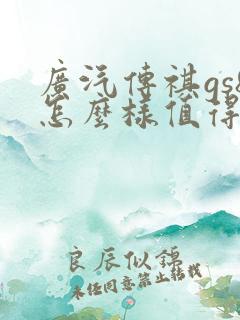 廣汽傳祺gs8
怎麼樣值得
良辰似錦
未經同意禁止轉載